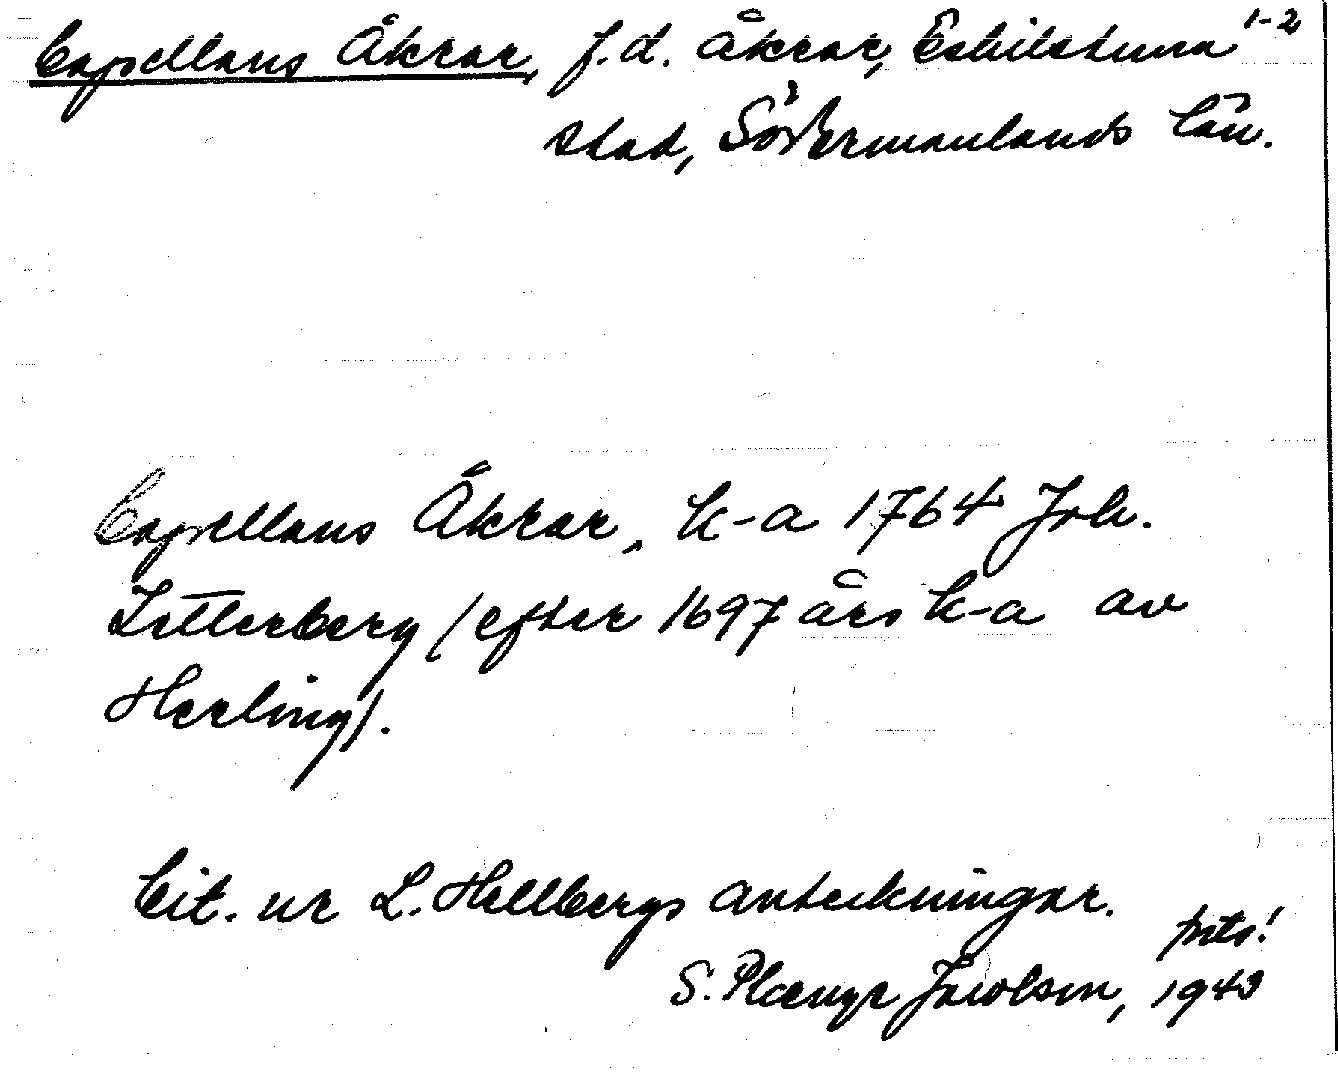 Capellans Åkrar, f.d. åkrar, Eskilstuna 1-2
stad, Södermanlands län.
Capellans Åkrar, k-a 1764 Joh.
Zetterberg /efter 1697 års k-a av
Herling/.
Cit. ur L. Hellbergs anteckningar.
foto!
S. Plænge Jacobson, 1943